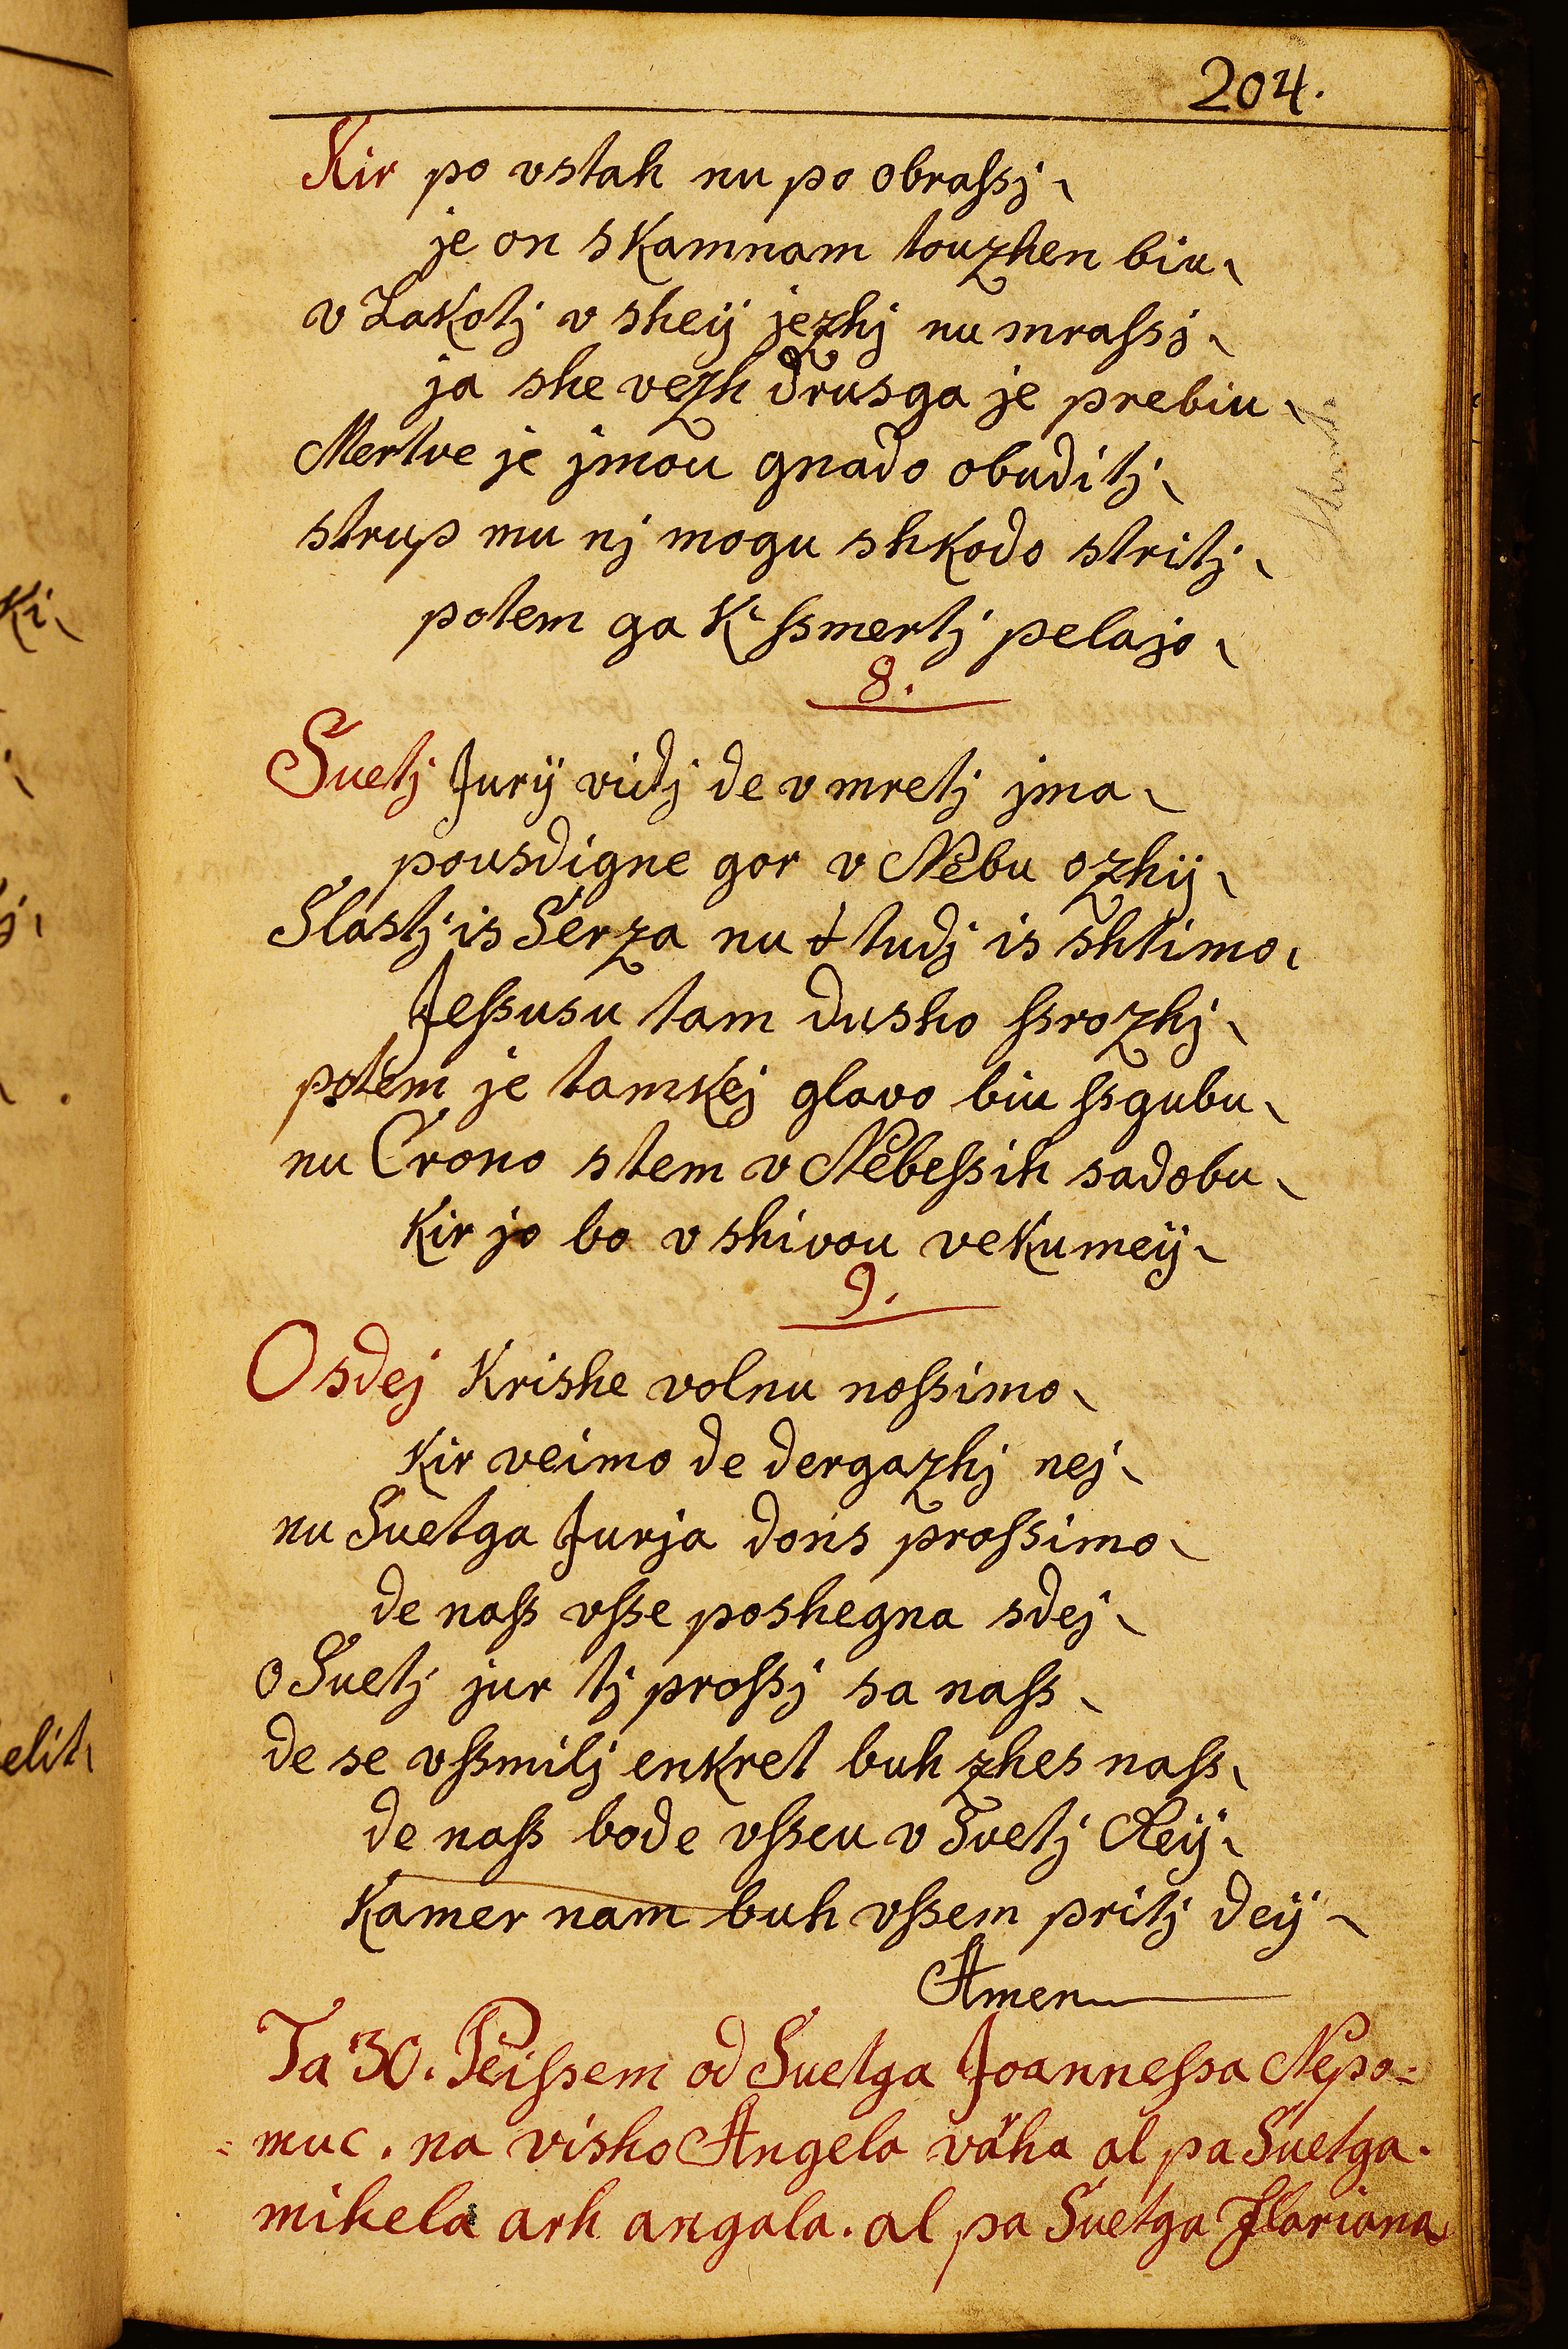 204.
Kir po vstah nu po obraſsj
je on skamnam touzhen biu
v Lakotj v sheij jezhj nu mraſsj
ja she vezh drusga je prebiu
Mertve je jmou gnado obuditj
strup mu nj mogu shkodo stritj
potem ga K ſsmertj pelajo
8.
Suetj Jurij vidj de v mretj jma
pousdigne gor v Nebu ozhij
Slastj is Serza nu tudj is shtimo
Jeſsusu tam dusho ſsrozhj
potem je tamkej glavo biu ſsgubu
nu Crono stem v Nebeſsih sadobu
Kir jo bo v shivou vekumeij
9.
O sdej Krishe volnu noſsimo
Kir veimo de dergazhj nej
nu Suetga Jurja dons proſsimo
de naſs vſse poshegna sdej
o Suetj jur tj proſsj sa naſs
de se vſsmilj enkret buh zhes naſs
de naſs bode vſseu v Suetj Reij
Kamer nam buh vſsem pritj deij
Amen
Ta 30. Peiſsem od Suetga Joanneſsa Nepo=
=muc. na visho Angela väha al pa Suetga.
mihela arh angala. al pa Suetga Floriana